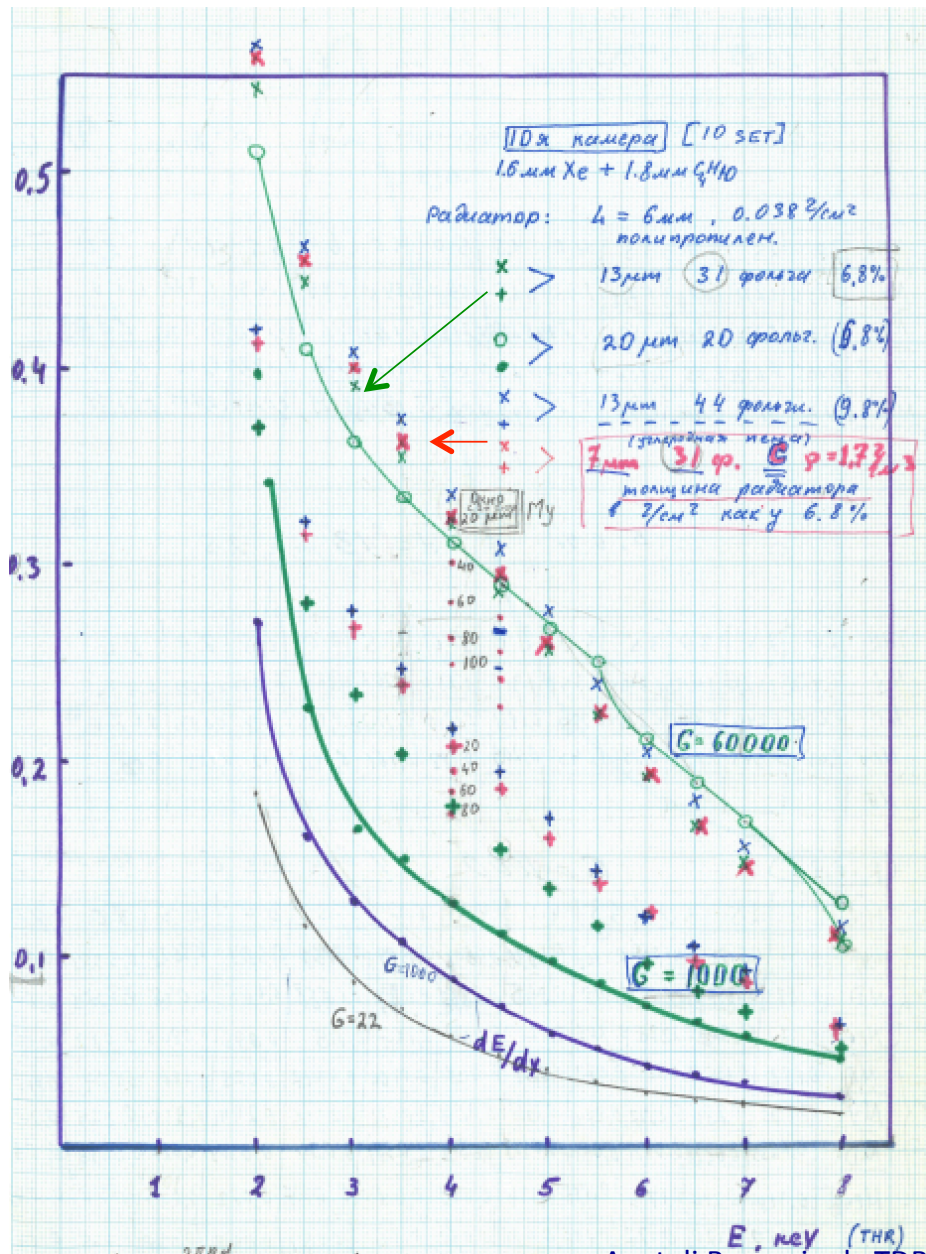 10я камера [10 SET]
1.6 мм Xe + 1.8 мм C4H10
Радиатор: L = 6 мм, 0.038 г/см²
полипропилен.
x
+ > 13 μm 31 фольга 6,8%
○
● > 20 μm 20 фольг. (6.8%)
x
+ > 13 μm 44 фольги. (9.8%)
(углеродная пена)
x
+ > 7 μm 31 ф. C ρ=1,7 г/см3
толщина радиатора
в г/см² как у 6.8%
0.5
0.4
0.3
0,2
0,1
20 μm
Му
40
60
80
100
20
40
60
80
G = 60000
G = 1000
G=1000
G=22
dE/dx
1 2 3 4 5 6 7 8
E, кеу (THR)